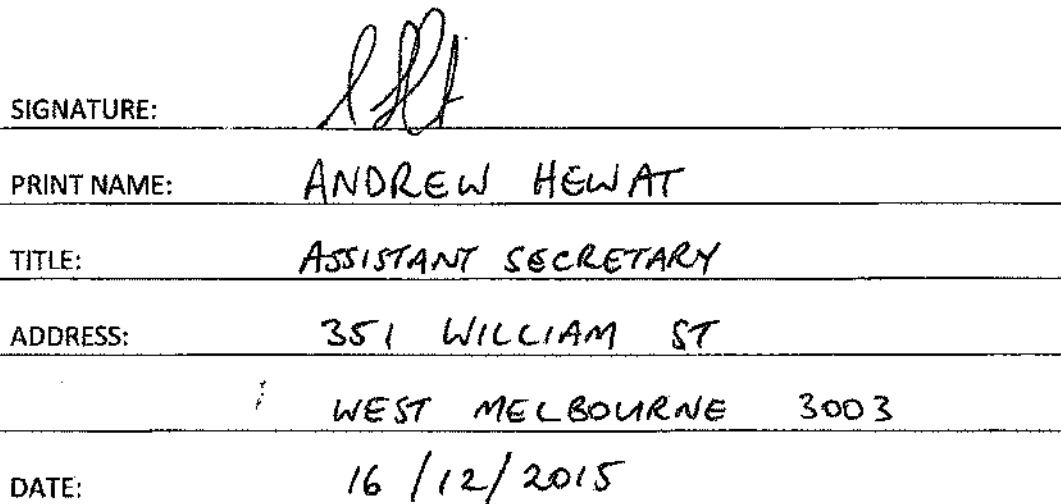 SIGNATURE:
PRINT NAME: ANDREW HEWAT
TITLE: ASSISTANT SECRETARY
ADDRESS: 351 WILLIAM ST
WEST MELBOURNE 3003
DATE: 16/12/2015